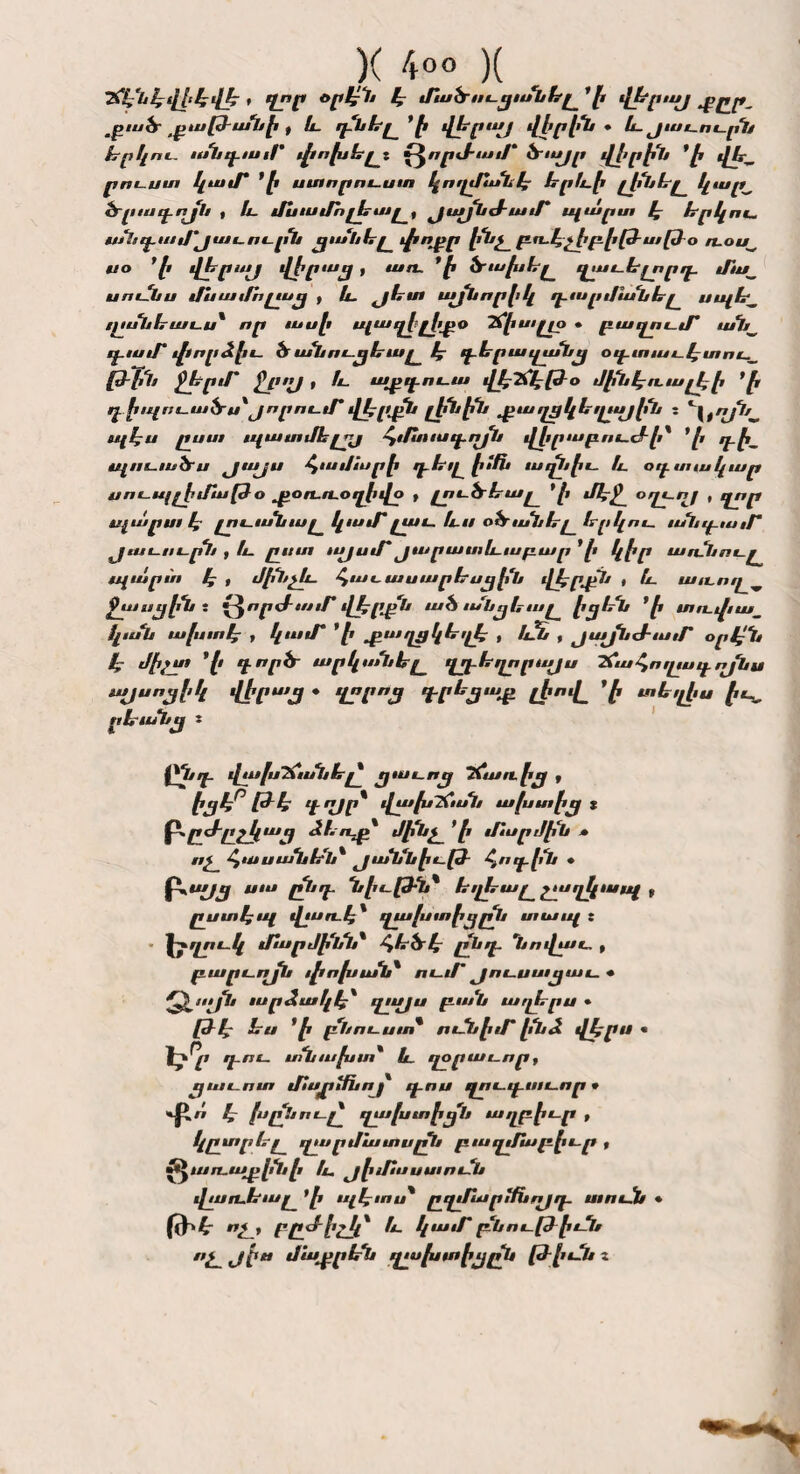 )( 400 )(
Ճէնէվիէվէ, զոր օրէն է մածուցանել՚ի վերայ քըր֊
քած քաթանի, և դնել՚ի վերայ վիրին. և յաւուրն
երկու անգամ փոխել։ Յորժամ ծայր վիրին ՚ի վե֊
րուստ կամ ՚ի ստորուստ կողմանէ երևի լինել կար֊
ծրագոյն, և մսամոլեալ, յայնժամ պարտ է երկու
անգամ յաւուրն ցանել փոքր ինչ բռէչիբիթաթօ ռօս֊
սօ ՚ի վերայ վիրաց, առ ՚ի ծախել զաւելորդ մա֊
սունս մսամոլաց, և յետ այնորիկ դարմանել սպե֊
ղանեաւս՝ որ ասի պազիլիքօ Ճիալլօ. բազում ան֊
գամ փորձիւ ծանուցեալ է գերազանց օգտաւէտու֊
թիւն ջերմ ջրոյ, և աքգուա վէՃէթօ մինէռալէի ՚ի
դիպուածս՝ յորում վէրքն լինին քաղցկեղային։ Նոյն֊
պէս ըստ պատմելոյ հմտագոյն վիրաբուժի՝ ՚ի դի֊
պուածս յայս համարի դեղ իմն ազնիւ և օգտակար
սուպլիմաթօ քօռռօզիվօ, լուծեալ ՚ի մէջ օղւոյ, զոր
պարտ է լուանալ կամ լաւ ևս օծանել երկու անգամ
յաւուրն, և ըստ այսմ յարատևաբար ՚ի կիր առնուլ
պարտ է, մինչև հաւասարեսցին վէրքն, և առող֊
ջասցին։ Յորժամ վէրքն ածանցեալ իցեն ՚ի տռփա֊
կան ախտէ, կամ ՚ի քաղցկեղէ, ևն, յայնժամ օրէն
է միշտ ՚ի գործ արկանել զդեղորայս Ճահողագոյնս
այսոցիկ վիրաց. զորոց գրեցաք լիով ՚ի տեղիս իւ֊
րեանց։
Ընդ վախՃանել՝ ցաւոց Ճառից,
իցէ՞ թէ գոյր՝ վախՃան ախտից։
Բըժըշկաց ձեռք՝ մինչ ՚ի մարմին.
ոչ հասանեն՝ յաննիւթ հոգին.
Բայց սա ընդ նիւթն՝ եղեալ շաղկապ,
ըստէպ վառէ՝ զախտիցըն տապ։
Եղուկ մարմինն՝ հեծէ ընդ նովաւ,
բարւոյն փոխան՝ ում յուսացաւ.
Զայն արձակէ՝ զայս բան աղերս.
թէ ես ՚ի բնուստ՝ ունիմ ինձ վէրս.
Ե՞ր դու տնախտ՝ և զօրաւոր,
ցաւոտ մաքրմնոյ՝ գոս զուգաւոր.
Քո է խընուլ՝ զախտիցն աղբիւր,
կըտրել զարմատսըն բազմաբիւր,
Յառաքինի և յիմաստուն
վառեալ ՚ի պէտս՝ ըզմարմնոյդ տուն.
Թէ ոչ, բըժիշկ՝ և կամ բնութիւն
ոչ յիս մաքրեն զախտիցըն թիւն։